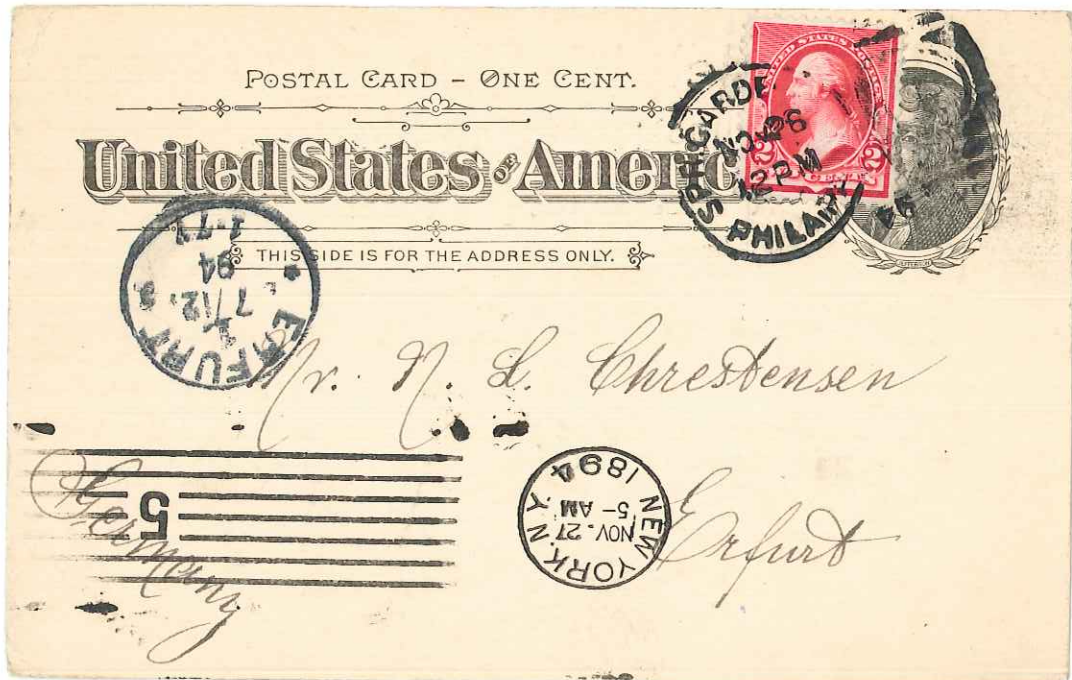 POSTAL CARD – ONE CENT.
United States OF America
THIS SIDE IS FOR THE ADDRESS ONLY.
UNITED STATES POSTAGE
2 2
CENTS
SPR. GARDEN
NOV 26
12 PM
94
PHILA
ERFURT
7/12.
94
Mr. N. L. Chrestensen
Erfurt
Germany
5
NEW YORK, N.Y.
NOV. 27
5 – AM
1894